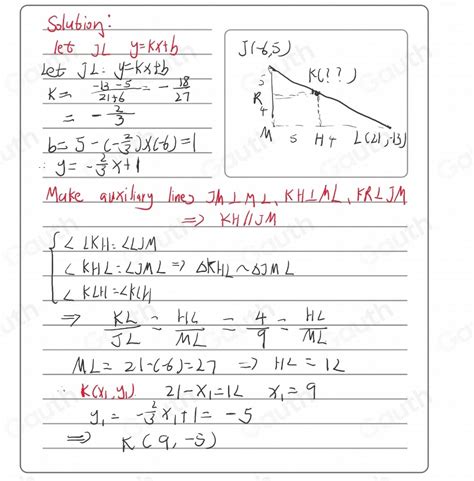 Solution:
let JL y=kx+b
Let JL: y=kx+b
K = (-13-5)/(21+6) = - 18/27
= - 2/3
b= 5 - (-2/3)×(-6)=1
∴ y= -2/3 x+1
J(-6,5)
K(??)
5
R
4
M 5 H 4 L(21,-13)
Make auxiliary lines JM⊥ML, KH⊥ML, KR⊥JM
⇒ KH//JM
∠LKH=∠LJM
∠KHL=∠JML ⇒ △KHL∽△JML
∠KLH=∠KLH
⇒ KL/JL = HL/ML = 4/9 = HL/ML
ML= 21-(-6)=27 ⇒ HL = 12
∵ K(x₁,y₁) 21-x₁=12 x₁=9
y₁ = -2/3 x₁+1= -5
⇒ K(9,-5)
Gauth